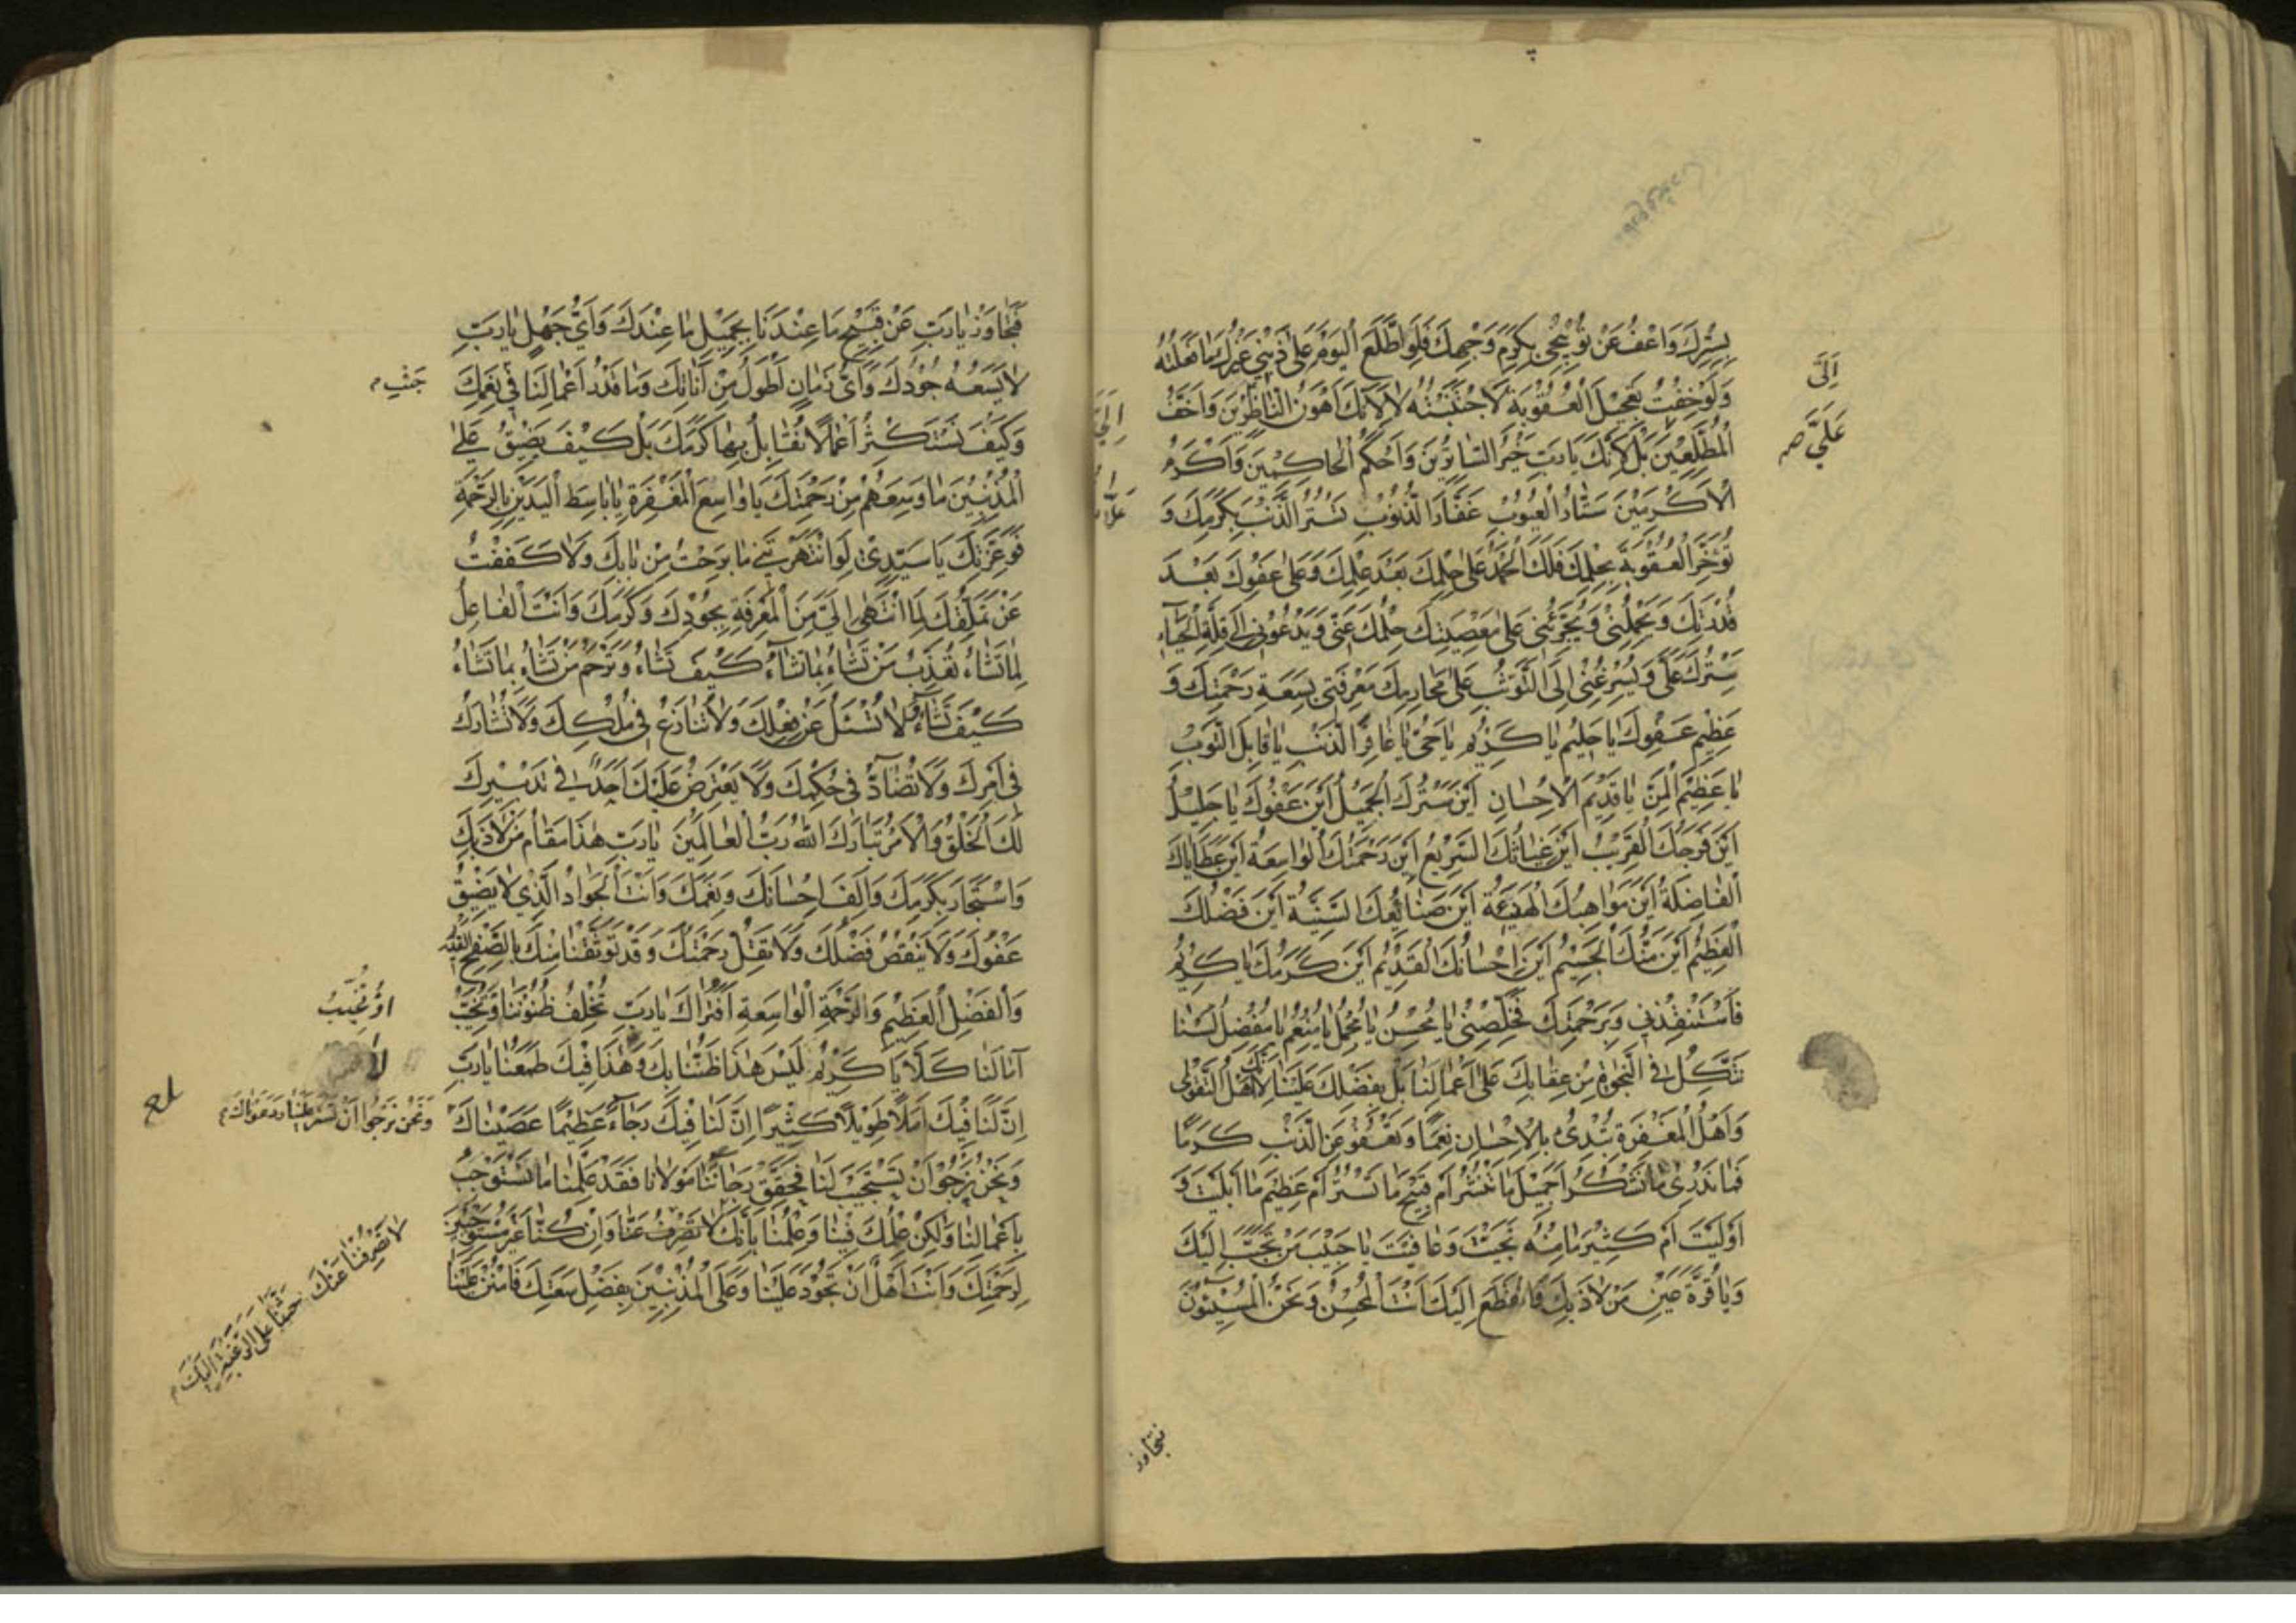 بِسِتْرِكَ وَاعْفُ عَنْ تَوْبِيخِي بِكَرَمِ وَجْهِكَ فَلَوِ اطَّلَعَ الْيَوْمَ عَلَى ذَنْبِي غَيْرُكَ مَا فَعَلْتُهُ
اِلَىَّ
وَلَوْ خِفْتُ تَعْجِيلَ الْعُقُوبَةِ لَاجْتَنَبْتُهُ لَا لِاَنَّكَ اَهْوَنُ النَّاظِرِينَ وَاَخَفُّ
عَلَىَّ صح
الْمُطَّلِعِينَ بَلْ لِاَنَّكَ يَا رَبِّ خَيْرُ السَّاتِرِينَ وَاَحْكَمُ الْحَاكِمِينَ وَاَكْرَمُ
الْاَكْرَمِينَ سَتَّارُ الْعُيُوبِ غَفَّارُ الذُّنُوبِ تَسْتُرُ الذَّنْبَ بِكَرَمِكَ وَ
تُؤَخِّرُ الْعُقُوبَةَ بِحِلْمِكَ فَلَكَ الْحَمْدُ عَلَى حِلْمِكَ بَعْدَ عِلْمِكَ وَعَلَى عَفْوِكَ بَعْدَ
قُدْرَتِكَ وَيَحْمِلُنِي وَيُجَرِّئُنِي عَلَى مَعْصِيَتِكَ حِلْمُكَ عَنِّي وَيَدْعُونِي اِلَى قِلَّةِ الْحَيَاءِ
سِتْرُكَ عَلَىَّ وَيُسْرِعُنِي اِلَى التَّوَثُّبِ عَلَى مَحَارِمِكَ مَعْرِفَتِي بِسَعَةِ رَحْمَتِكَ وَ
عَظِيمِ عَفْوِكَ يَا حَلِيمُ يَا كَرِيمُ يَا حَىُّ يَا غَافِرَ الذَّنْبِ يَا قَابِلَ التَّوْبِ
يَا عَظِيمَ الْمَنِّ يَا قَدِيمَ الْاِحْسَانِ اَيْنَ سِتْرُكَ الْجَمِيلُ اَيْنَ عَفْوُكَ يَا جَلِيلُ
اَيْنَ فَرَجُكَ الْقَرِيبُ اَيْنَ غِيَاثُكَ السَّرِيعُ اَيْنَ رَحْمَتُكَ الْوَاسِعَةُ اَيْنَ عَطَايَاكَ
الْفَاضِلَةُ اَيْنَ مَوَاهِبُكَ الْهَنِيئَةُ اَيْنَ صَنَائِعُكَ السَّنِيَّةُ اَيْنَ فَضْلُكَ
الْعَظِيمُ اَيْنَ مَنُّكَ الْجَسِيمُ اَيْنَ اِحْسَانُكَ الْقَدِيمُ اَيْنَ كَرَمُكَ يَا كَرِيمُ
فَاسْتَنْقِذْنِي وَبِرَحْمَتِكَ فَخَلِّصْنِي يَا مُحْسِنُ يَا مُجْمِلُ يَا مُنْعِمُ يَا مُفْضِلُ لَسْنَا
نَتَّكِلُ فِي النَّجَاةِ مِنْ عِقَابِكَ عَلَى اَعْمَالِنَا بَلْ بِفَضْلِكَ عَلَيْنَا لِاَنَّكَ اَهْلُ التَّقْوَى
وَاَهْلُ الْمَغْفِرَةِ تُبْدِئُ بِالْاِحْسَانِ نِعَمًا وَتَعْفُو عَنِ الذَّنْبِ كَرَمًا
فَمَا نَدْرِي مَا نَشْكُرُ اَجَمِيلَ مَا تَنْشُرُ اَمْ قَبِيحَ مَا تَسْتُرُ اَمْ عَظِيمَ مَا اَبْلَيْتَ وَ
اَوْلَيْتَ اَمْ كَثِيرَ مَا مِنْهُ نَجَّيْتَ وَعَافَيْتَ يَا حَبِيبَ مَنْ تَحَبَّبَ اِلَيْكَ
وَيَا قُرَّةَ عَيْنِ مَنْ لَاذَ بِكَ وَانْقَطَعَ اِلَيْكَ اَنْتَ الْمُحْسِنُ وَنَحْنُ الْمُسِيئُونَ
فتجاوز
فَتَجَاوَزْ يَا رَبِّ عَنْ قَبِيحِ مَا عِنْدَنَا بِجَمِيلِ مَا عِنْدَكَ وَاَىُّ جَهْلٍ يَا رَبِّ
لَا يَسَعُهُ جُودُكَ وَاَىُّ زَمَانٍ اَطْوَلُ مِنْ اَنَاتِكَ وَمَا قَدْرُ اَعْمَالِنَا فِي نِعَمِكَ
جَنْبِ
وَكَيْفَ نَسْتَكْثِرُ اَعْمَالًا نُقَابِلُ بِهَا كَرَمَكَ بَلْ كَيْفَ يَضِيقُ عَلَى
الْمُذْنِبِينَ مَا وَسِعَهُمْ مِنْ رَحْمَتِكَ يَا وَاسِعَ الْمَغْفِرَةِ يَا بَاسِطَ الْيَدَيْنِ بِالرَّحْمَةِ
فَوَعِزَّتِكَ يَا سَيِّدِي لَوِ انْتَهَرْتَنِي مَا بَرِحْتُ مِنْ بَابِكَ وَلَا كَفَفْتُ
عَنْ تَمَلُّقِكَ لِمَا انْتَهَى اِلَىَّ مِنَ الْمَعْرِفَةِ بِجُودِكَ وَكَرَمِكَ وَاَنْتَ الْفَاعِلُ
لِمَا تَشَاءُ تُعَذِّبُ مَنْ تَشَاءُ بِمَا تَشَاءُ كَيْفَ تَشَاءُ وَتَرْحَمُ مَنْ تَشَاءُ بِمَا تَشَاءُ
كَيْفَ تَشَاءُ وَلَا تُسْئَلُ عَنْ فِعْلِكَ وَلَا تُنَازَعُ فِي مُلْكِكَ وَلَا تُشَارَكُ
فِي اَمْرِكَ وَلَا تُضَادُّ فِي حُكْمِكَ وَلَا يَعْتَرِضُ عَلَيْكَ اَحَدٌ فِي تَدْبِيرِكَ
لَكَ الْخَلْقُ وَالْاَمْرُ تَبَارَكَ اللهُ رَبُّ الْعَالَمِينَ يَا رَبِّ هٰذَا مَقَامُ مَنْ لَاذَ بِكَ
وَاسْتَجَارَ بِكَرَمِكَ وَاَلِفَ اِحْسَانَكَ وَنِعَمَكَ وَاَنْتَ الْجَوَادُ الَّذِي لَا يَضِيقُ
عَفْوُكَ وَلَا يَنْقُصُ فَضْلُكَ وَلَا تَقِلُّ رَحْمَتُكَ وَقَدْ تَوَثَّقْنَا مِنْكَ بِالصَّفْحِ الْقَدِيمِ
وَالْفَضْلِ الْعَظِيمِ وَالرَّحْمَةِ الْوَاسِعَةِ اَفَتُرَاكَ يَا رَبِّ تُخْلِفُ ظُنُونَنَا وَتُخَيِّبُ
اَوْ تُخَيِّبُ
آمَالَنَا كَلَّا يَا كَرِيمُ لَيْسَ هٰذَا ظَنُّنَا بِكَ وَهٰذَا فِيكَ طَمَعُنَا يَا رَبِّ
لَا
اِنَّ لَنَا فِيكَ اَمَلًا طَوِيلًا كَثِيرًا اِنَّ لَنَا فِيكَ رَجَاءً عَظِيمًا عَصَيْنَاكَ
وَنَحْنُ نَرْجُوا اَنْ تَسْتُرَ عَلَيْنَا وَدَعَوْنَاكَ
وَنَحْنُ نَرْجُوا اَنْ تَسْتَجِيبَ لَنَا فَحَقِّقْ رَجَائَنَا مَوْلَانَا فَقَدْ عَلِمْنَا مَا نَسْتَوْجِبُ
بِاَعْمَالِنَا وَلٰكِنْ عِلْمُكَ فِينَا وَعِلْمُنَا بِاَنَّكَ لَا تَصْرِفُ عَنَّا وَاِنْ كُنَّا غَيْرَ مُسْتَوْجِبِينَ
لَا تَصْرِفُنَا عَنْكَ حَثَّنَا عَلَى الرَّغْبَةِ اِلَيْكَ
لِرَحْمَتِكَ وَاَنْتَ اَهْلٌ اَنْ تَجُودَ عَلَيْنَا وَعَلَى الْمُذْنِبِينَ بِفَضْلِ سَعَتِكَ فَامْنُنْ عَلَيْنَا